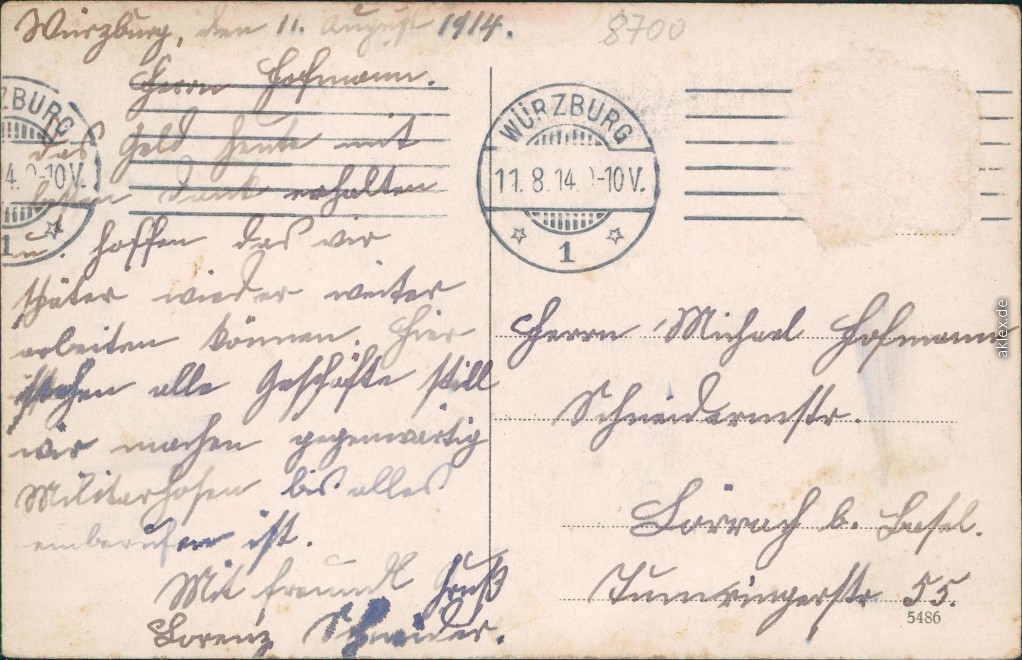 Würzburg, den 11. August 1914.
8700
Herrn Hofmann.
das Geld heute mit
besten Dank erhalten
u. hoffen das wir
später wieder weiter
arbeiten können. Hier
stehen alle Geschäfte still
wir machen gegenwärtig
Militärhosen bis alles
einberufen ist.
Mit freundl Gruß
Lorenz Schneider.
ZBURG
4. 9-10V.
1
WÜRZBURG
11.8.14. 9-10V.
1
Herrn Michael Hofmann
Schneidermstr.
Lörrach b. Basel.
Tumringerstr 55.
5486
aklex.de